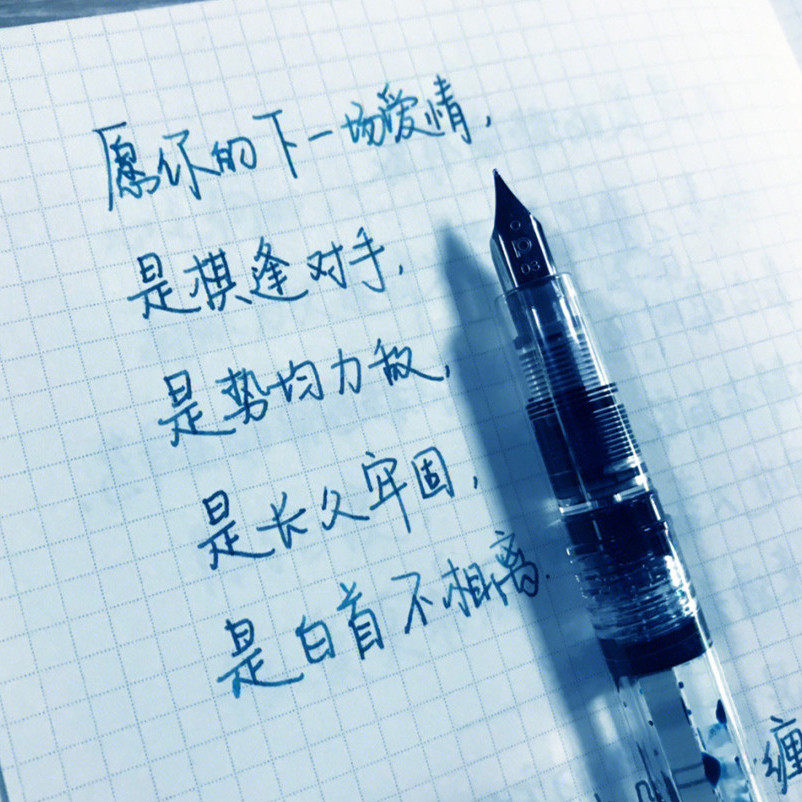 愿你的下一场爱情，
是棋逢对手，
是势均力敌，
是长久牢固，
是白首不相离.
缠